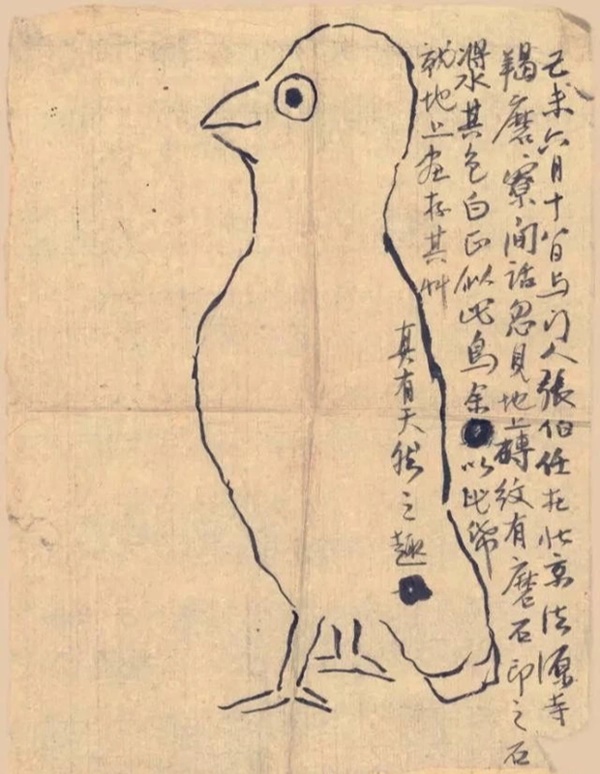 己未六月十八日与门人張伯任在北京法源寺
羯磨寮閒話忽見地上磚紋有磨石印之石
漿水其色白正似此鳥余以此紙
就地上画存其草
真有天然之趣